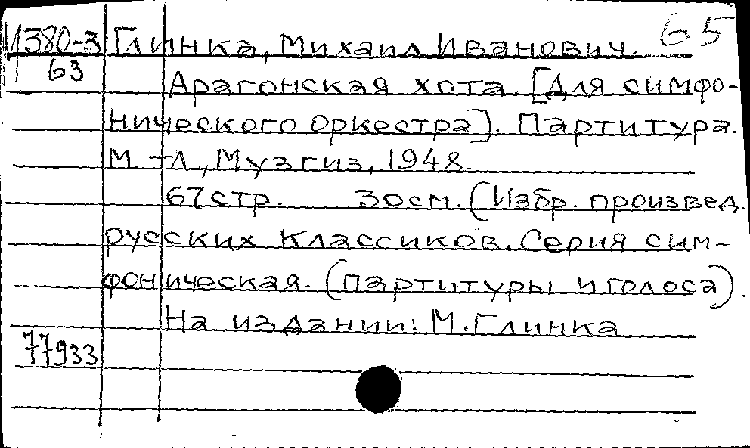 380-3 Глинка, Михаил Иванович. 65
63 Арагонская хота. [Для симфо-
нического оркестра]. Партитура.
М.-Л., Музгиз, 1948
67 стр. 30 см. (Избр. произвед.
русских классиков. Серия сим-
фоническая. (партитуры и голоса).
На издании: М. Глинка
77933